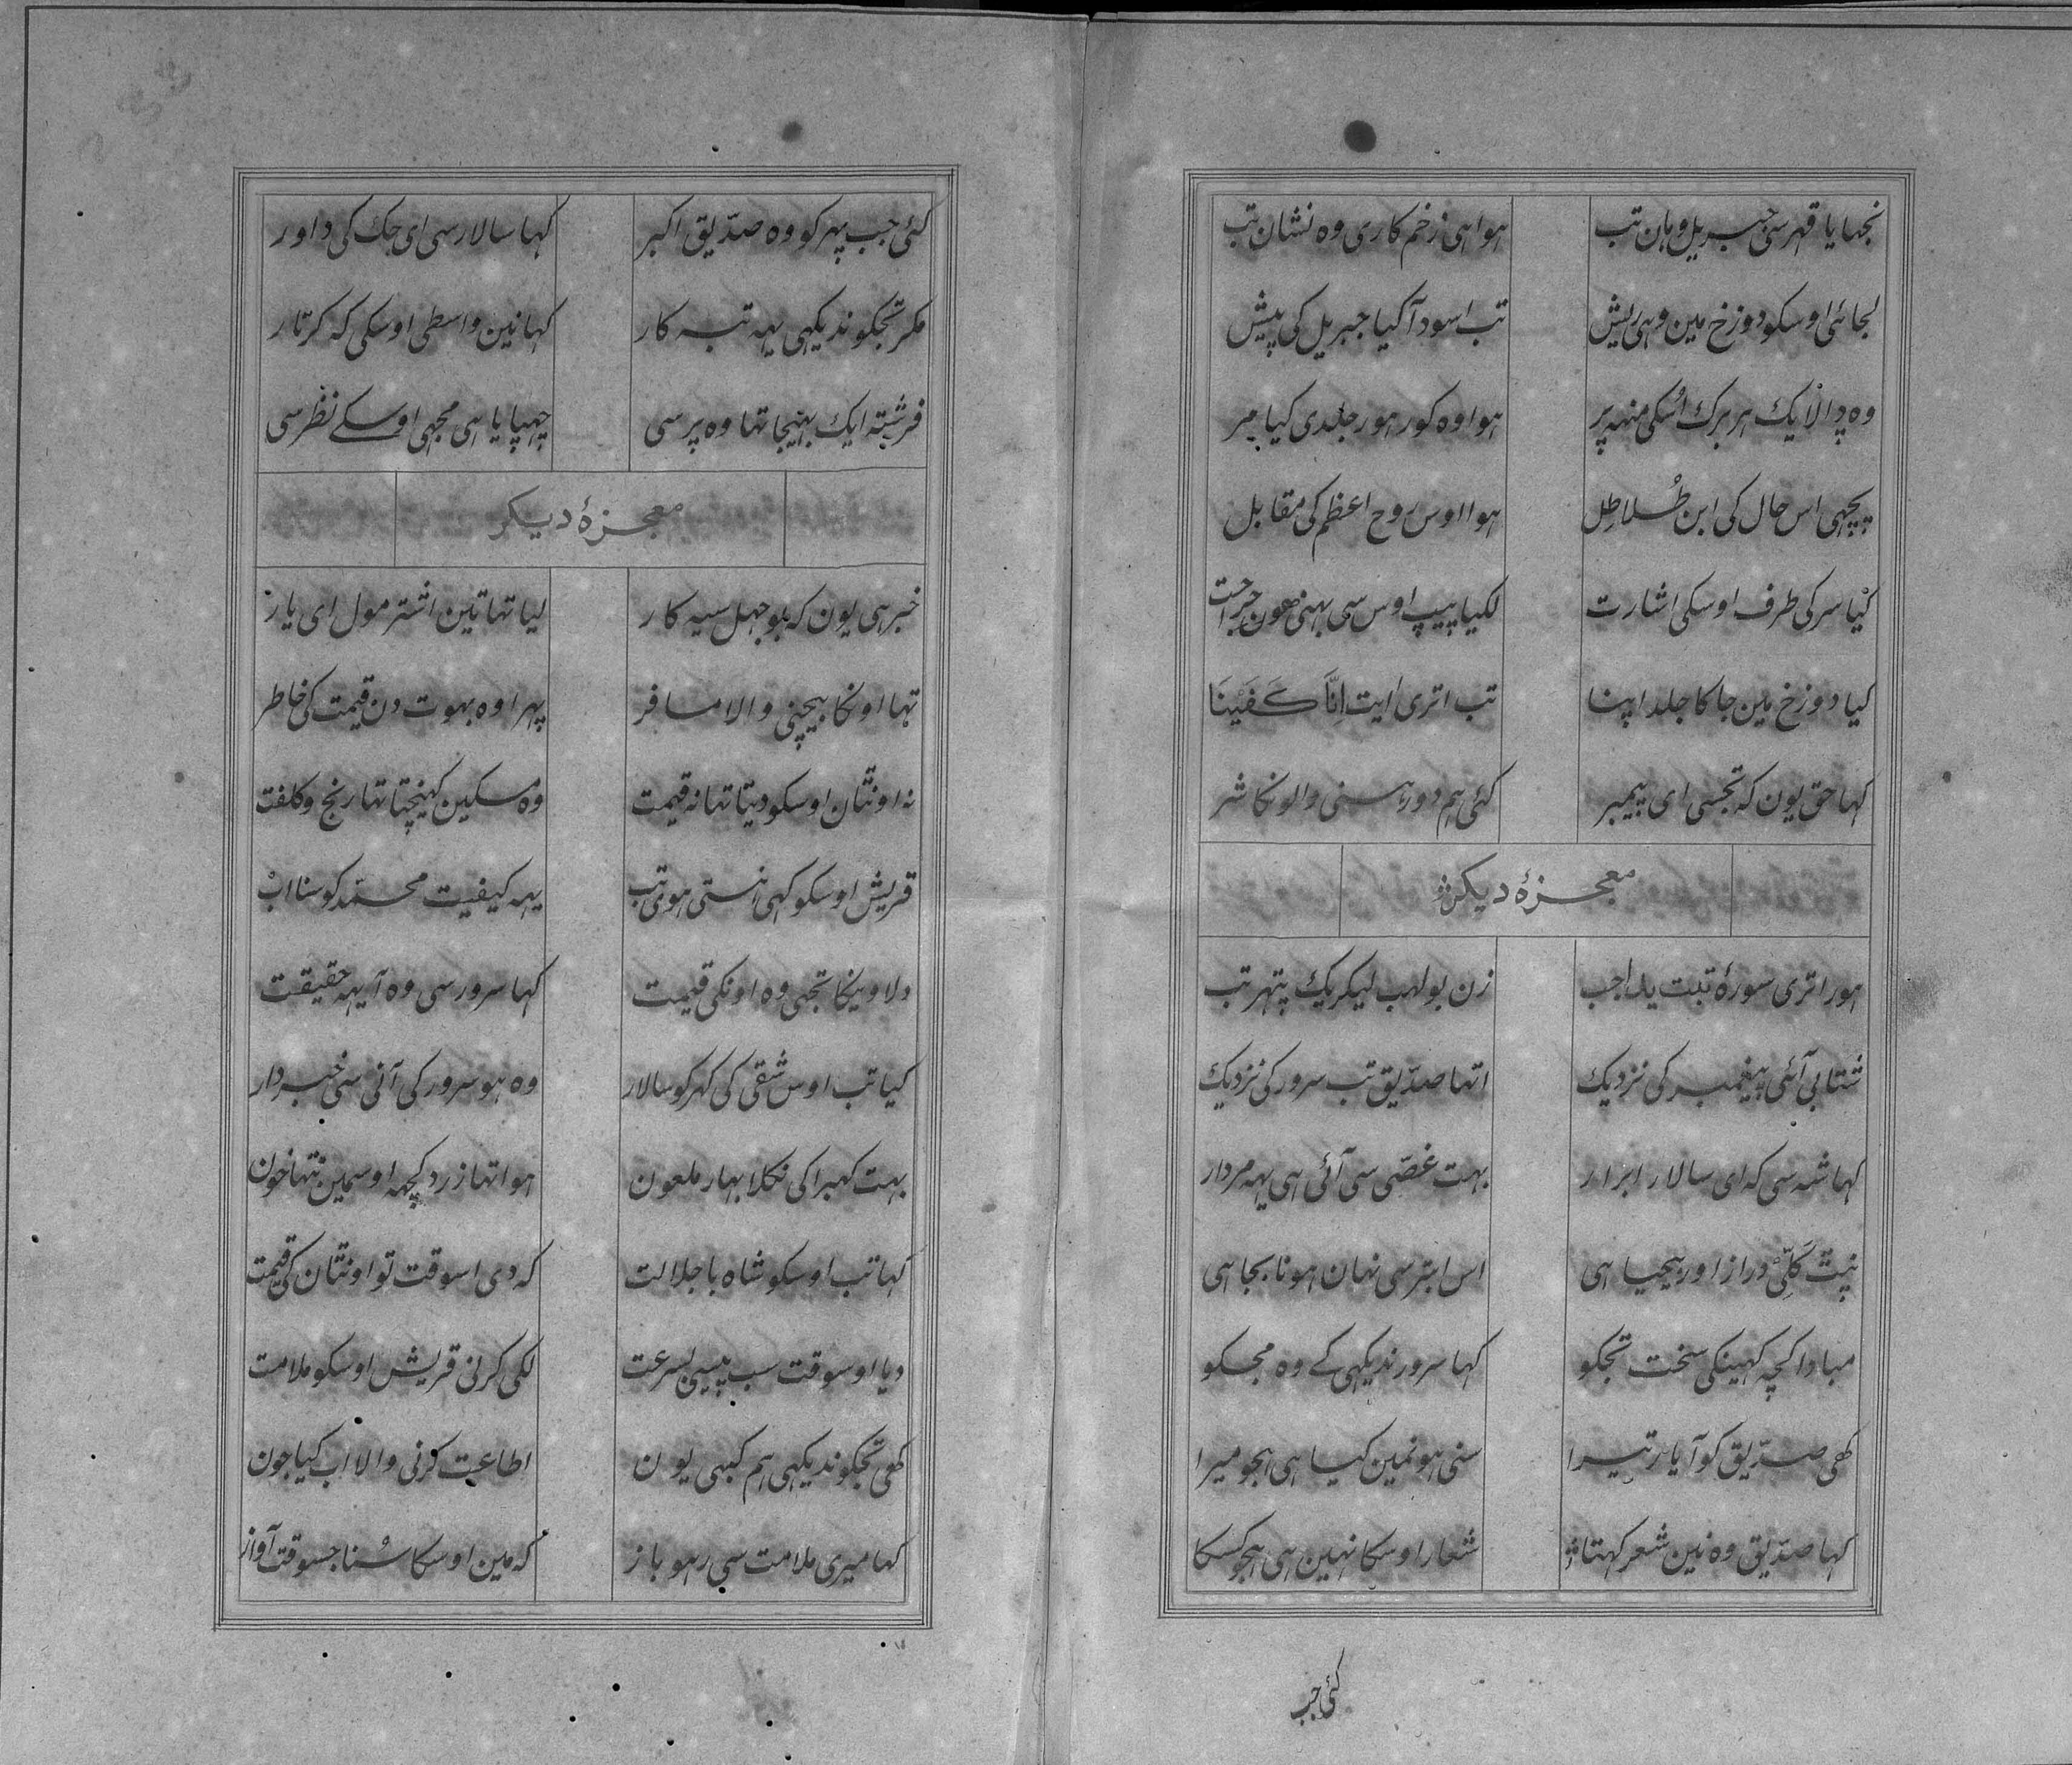 نجہایا قہر سی جبریل وہان تب ہوا ہی زخم کاری وہ نشان تب
لجائی اوسکو دوزخ مین وہی ریش تب اسود آ کیا جبریل کی پیش
وہ ڈالا یک ہر برک اُسکی منہہ پر ہوا وہ کور ہور جلدی کیا مر
پچہی اس حال کی ابن طُلاطِل ہوا اوس روح اعظم کی مقابل
کیا سر کی طرف اوسکی اشارت لکیا پیپ اوس سی بہنی ھون جراحت
کیا دوزخ مین جا کا جلد اپنا تب اتری ایت اِنَّا کَفَیْنَا
کہا حق یون کہ تجسی ای پیمبر کئی ہم دور ہنسنی والونکا شر
معجزۂ دیکر
ہور اتری سورۂ تبت یدا جب زن بولہب لیکر یک پتہر تب
شتابی آئی پیغمبر کی نزدیک اتہا صدّیق تب سرور کی نزدیک
کہا شہ سی کہ ای سالار ابرار بہت غصّی سی آئی ہی یہہ مردار
نپٹ کَلّی دراز اور بیحیا ہی اس ابتر سی نہان ہونا بجا ہی
مبادا کچہ کہینکی سخت تجکو کہا سرور ندیکہی کے وہ مجکو
کھی صدّیق کو آ یار تیرا سنی ہونمین کیا ہی ہجو میرا
کہا صدّیق وہ نین شعر کہتا شعار اوسکا نہین ہی ہجو کسکا
کئی جب
کئی جب پہر کو وہ صدّیق اکبر کہا سالار سی ای جک کی داور
مکر تجکو ندیکہی یہہ تبہ کار کہا نین واسطی اوسکی کہ کرتار
فرشتہ ایک بہیجا تہا وہ پر سی چہپایا ہی مجہی اوسکے نظر سی
معجزۂ دیکر
خبر ہی یون کہ بلوجہل سیہ کار لیا تہا تین اشتر مول ای یار
تہا اونکا بیچنی والا مسافر پہرا وہ بہوت دن قیمت کی خاطر
نہ اونٹان اوسکو دیتا تہا نہ قیمت وہ مسکین کہینچتا تہا رنج و کلفت
قریش اوسکو کہی ہنستی ہوی تب یہہ کیفیت محمّد کو سنا اب
دلاوینکا تجہی وہ اونکی قیمت کہا سرور سی وہ آ یہہ حقیقت
کیا تب اوس شقی کی کہر کو سالار وہ ہو سرور کی آنی سی خبردار
بہت کہبرا کی نکلا بہار ملعون ہوا تہا زرد کچہہ اوسمین نتہا خون
کہا تب اوسکو شاہ با جلالت کہ دی اسوقت تو اونٹان کی قیمت
دیا اوسوقت سب پیسی بسرعت لکی کرنی قریش اوسکو ملامت
کھی تجکو ندیکہی ہم کبہی یون اطاعت کرنی والا اب کیا جون
کہا میری ملامت سی رہو باز کہ مین اوسکا سُنا جسوقت آواز